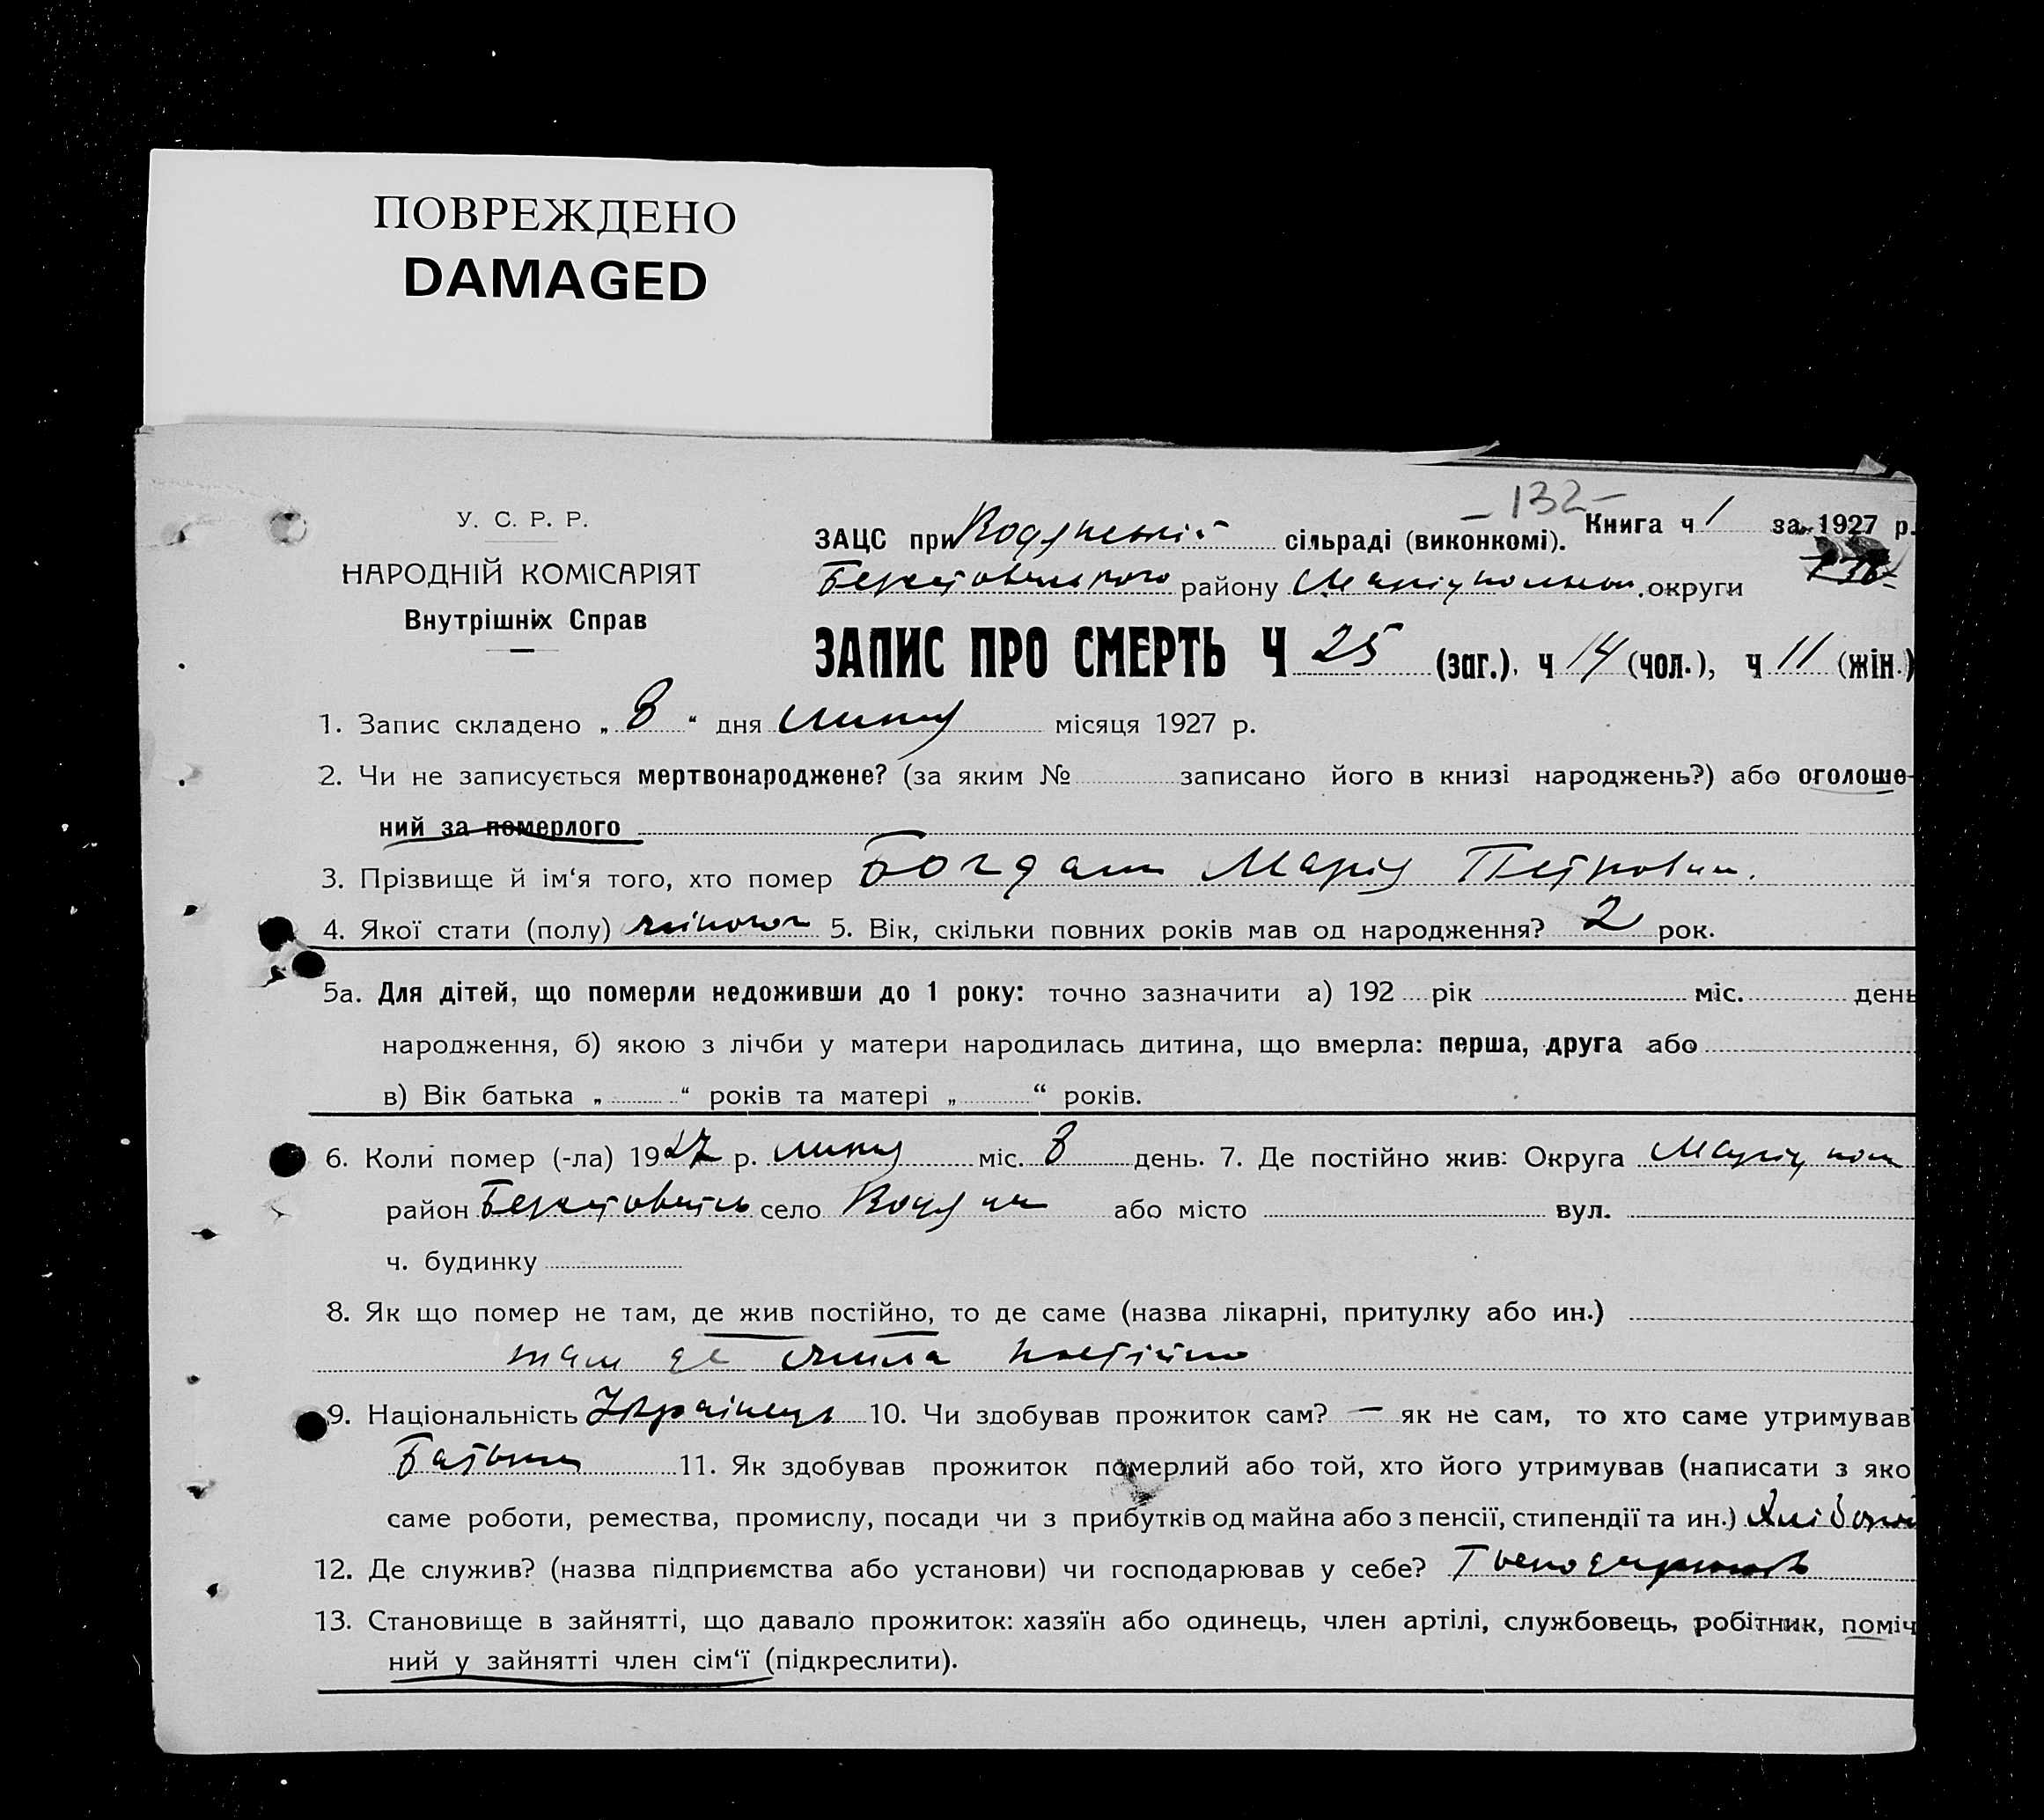 ПОВРЕЖДЕНО
DAMAGED
- 132 -
У. С. Р. Р.
НАРОДНІЙ КОМІСАРІЯТ
Внутрішніх Справ
Книга ч 1 за 1927 р.
ЗАЦС при сільраді (виконкомі).
району округи
ЗАПИС ПРО СМЕРТЬ Ч 25 (заг.), ч 14 (чол.), ч 11 (жін.)
1. Запис складено „ 8 “ дня місяця 1927 р.
2. Чи не записується мертвонароджене? (за яким № записано його в книзі народжень?) або оголоше-
ний за померлого
3. Прізвище й ім‘я того, хто помер Богдан Марія Петровна.
4. Якої стати (полу) жіночої 5. Вік, скільки повних років мав од народження? 2 рок.
5а. Для дітей, що померли недоживши до 1 року: точно зазначити а) 192 рік міс. день
народження, б) якою з лічби у матери народилась дитина, що вмерла: перша, друга або
в) Вік батька „ “ років та матері „ “ років.
6. Коли помер (-ла) 1927 р. міс. 8 день. 7. Де постійно жив: Округа Маріупол
район село або місто вул.
ч. будинку
8. Як що помер не там, де жив постійно, то де саме (назва лікарні, притулку або ин.)
там де жила постійно
9. Національність Українець 10. Чи здобував прожиток сам? — як не сам, то хто саме утримував
Батько 11. Як здобував прожиток померлий або той, хто його утримував (написати з яко
саме роботи, ремества, промислу, посади чи з прибутків од майна або з пенсії, стипендії та ин.)
12. Де служив? (назва підприємства або установи) чи господарював у себе?
13. Становище в зайнятті, що давало прожиток: хазяїн або одинець, член артілі, службовець, робітник, поміч
ний у зайнятті член сім‘ї (підкреслити).